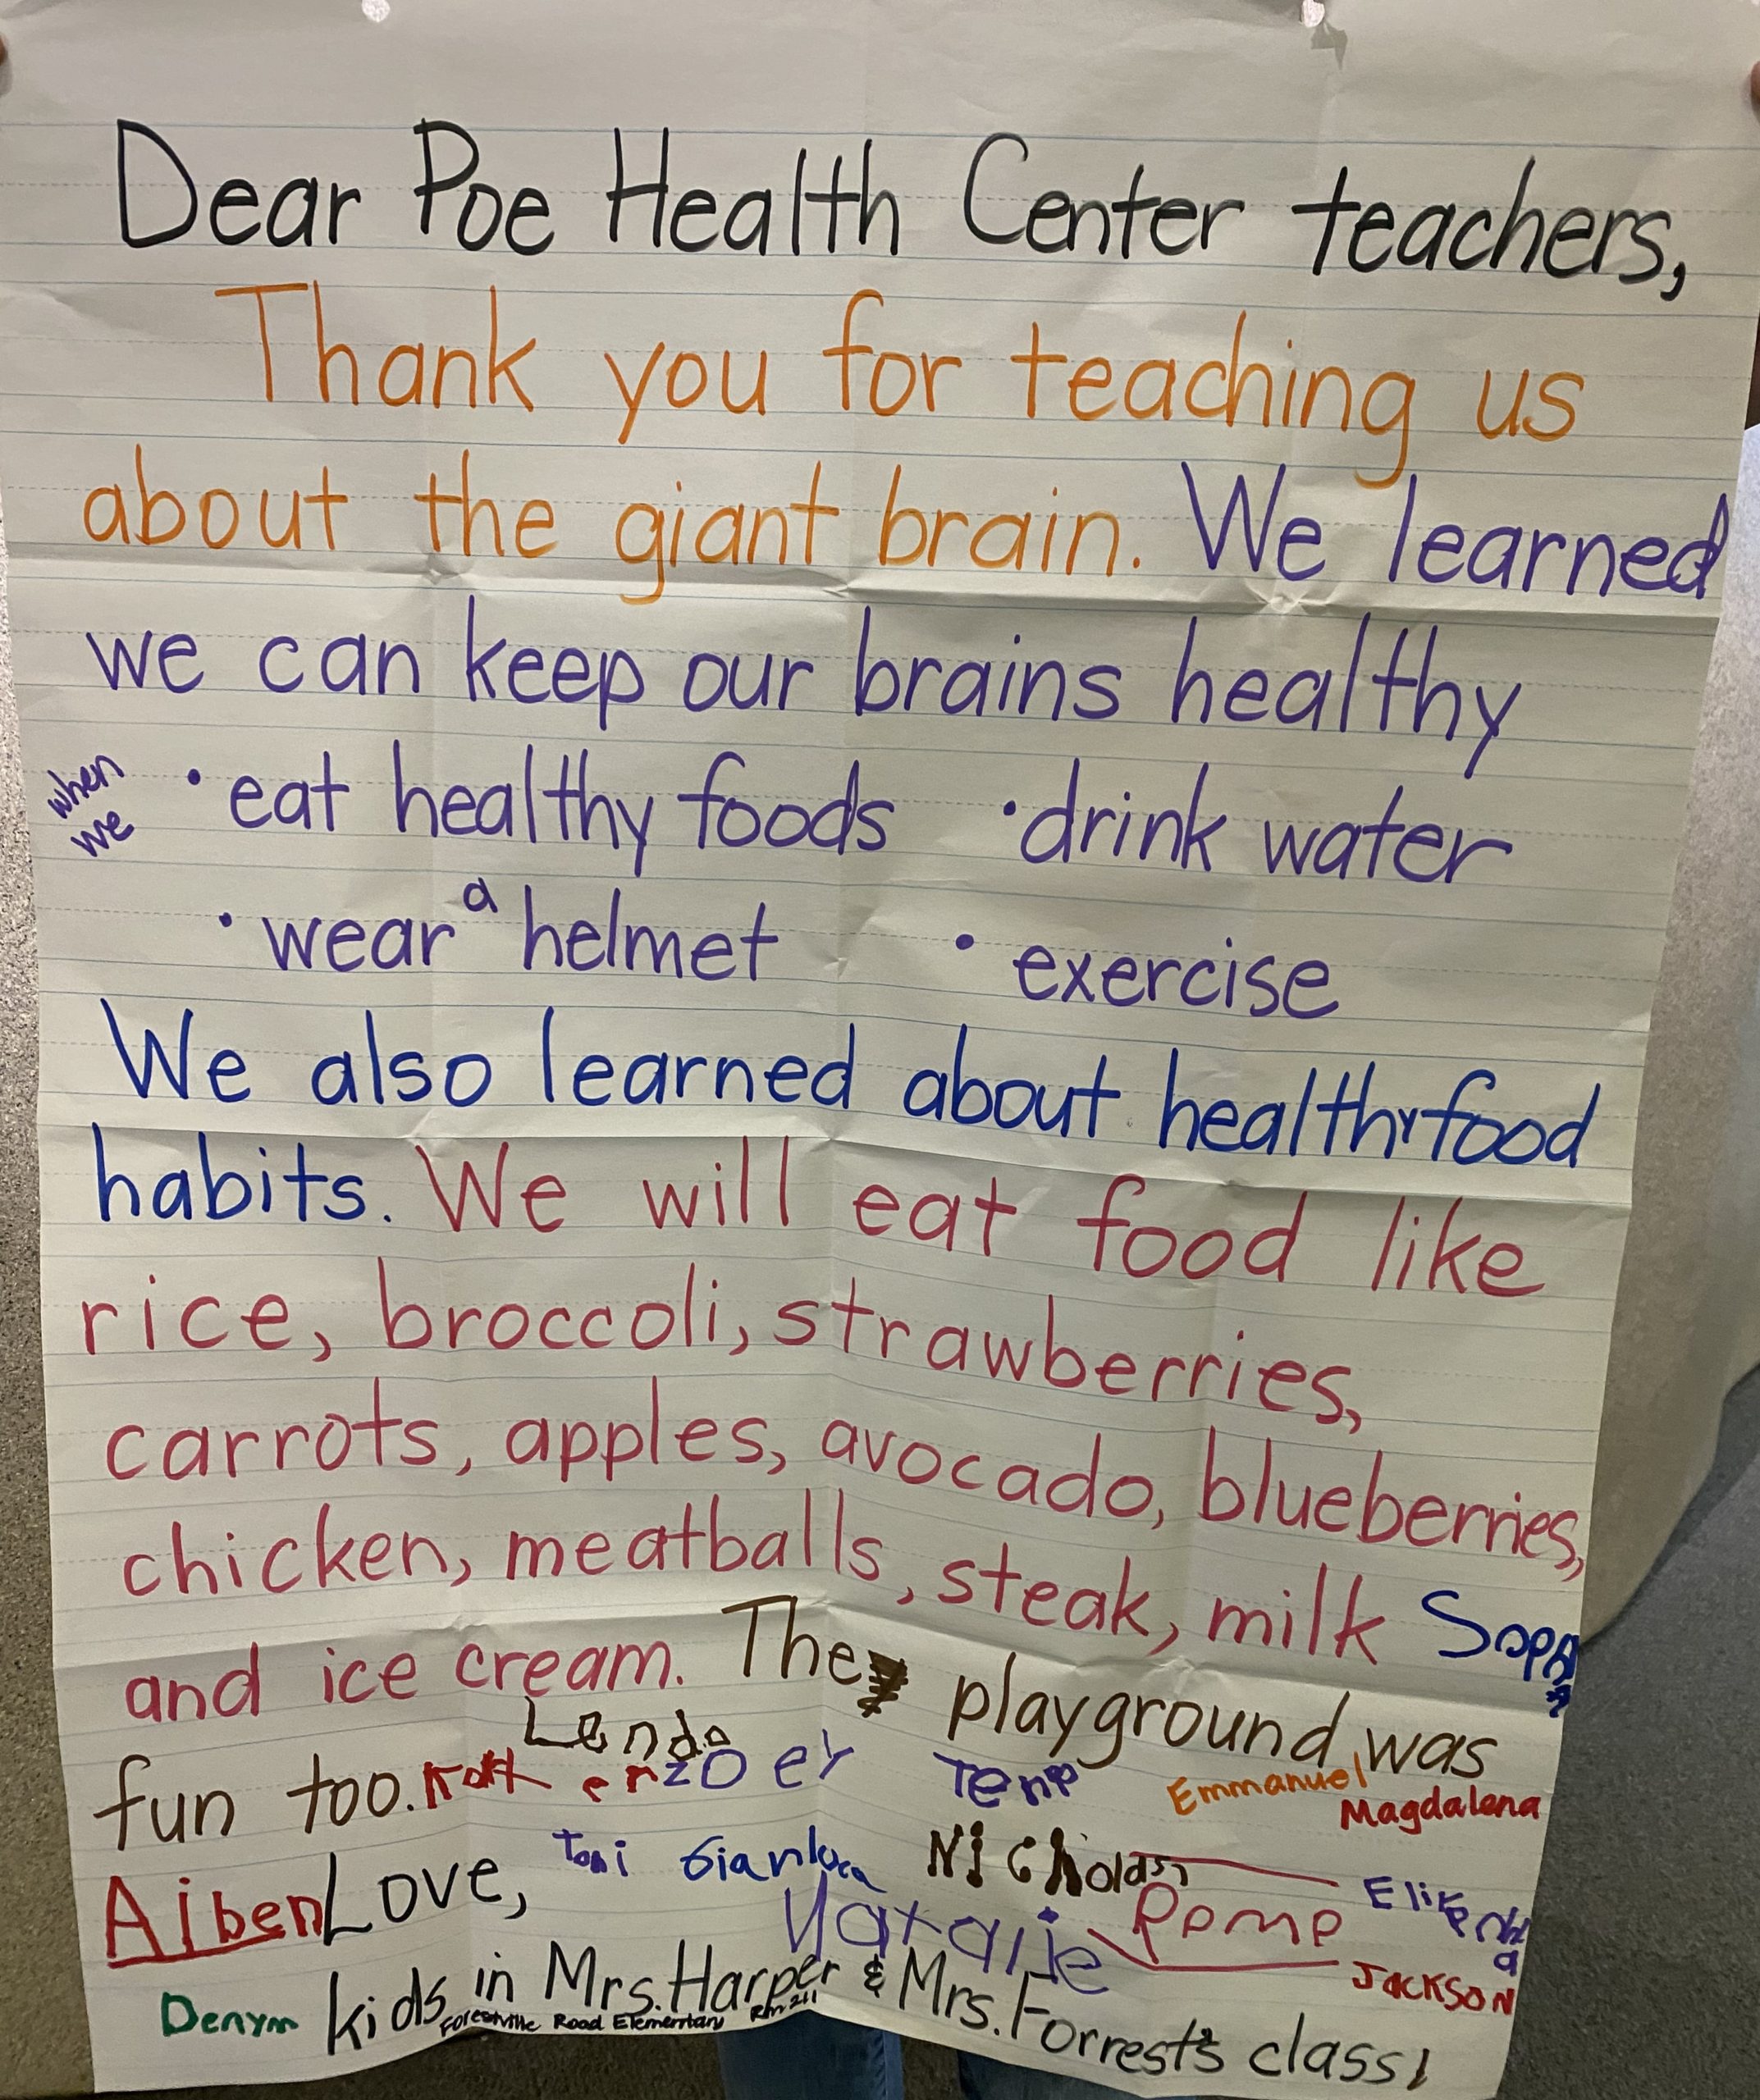 Dear Poe Health Center teachers,
Thank you for teaching us
about the giant brain. We learned
we can keep our brains healthy
when we
• eat healthy foods • drink water
• wear a helmet • exercise
We also learned about healthy food
habits. We will eat food like
rice, broccoli, strawberries,
carrots, apples, avocado, blueberries,
chicken, meatballs, steak, milk
and ice cream. The playground was
fun too.
Zoey Emmanuel
Magdalena
Aiben Love, Gianluca Nicholas
Natalie
JACKSON
Denym kids in Mrs. Harper & Mrs. Forrest's class!
Forestville Road Elementary Rm 211